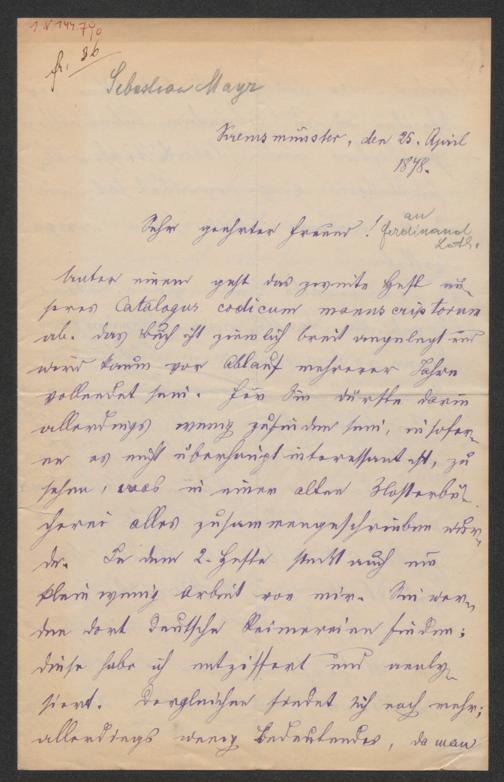 I.N. 144.790
fr. 86
Sebastian Mayr
Kremsmünster, den 25. April
1878.
Sehr geehrter Freund!
an
Ferdinand
Loth.
Unter einem geht das zweite Heft un-
seres Catalogus codicum manuscriptorum
ab. Das Buch ist ziemlich breit angelegt und
wird kaum vor Ablauf mehrerer Jahre
vollendet sein. Für Sie dürfte darin
allerdings wenig zu finden sein, insofer-
ne es nicht überhaupt interessant ist, zu
sehen, was in einer alten Klosterbü-
cherei alles zusammengeschrieben wur-
de. In dem 2. Hefte steckt auch ein
klein wenig Arbeit von mir. Sie wer-
den dort deutsche Reimereien finden;
diese habe ich entziffert und analy-
siert. Dergleichen findet sich noch mehr;
allerdings wenig Bedeutendes, da man